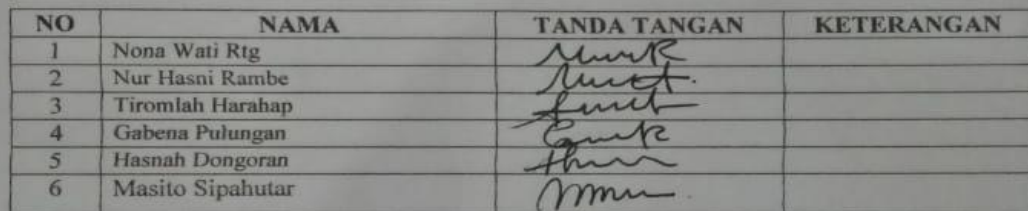 NO NAMA TANDA TANGAN KETERANGAN
1 Nona Wati Rtg
2 Nur Hasni Rambe
3 Tiromlah Harahap
4 Gabena Pulungan
5 Hasnah Dongoran
6 Masito Sipahutar